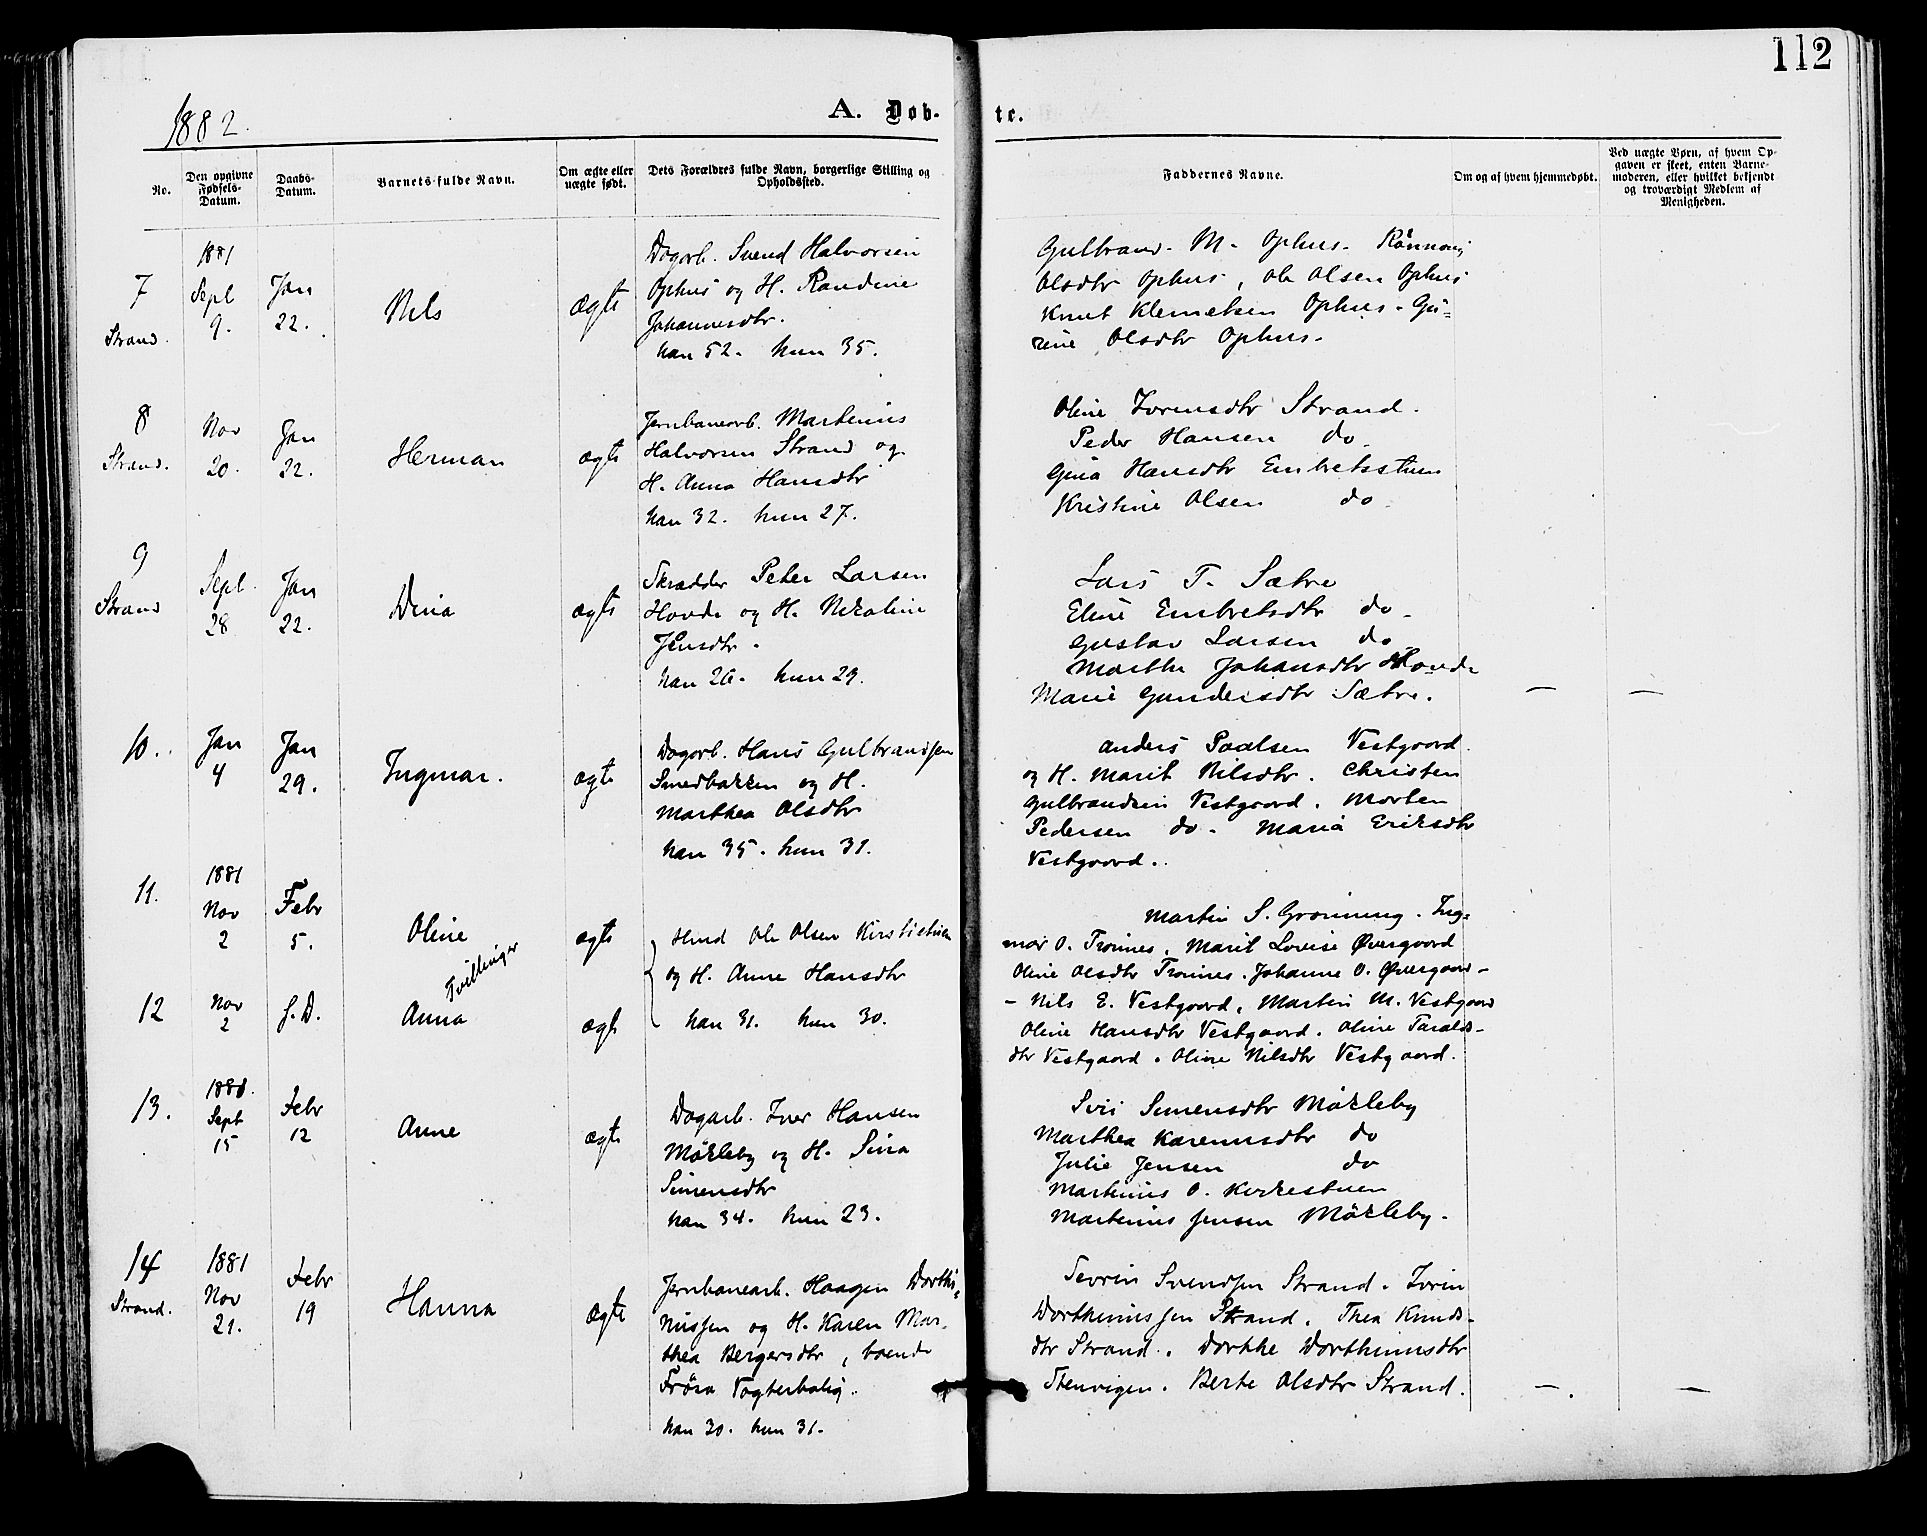 112
1882.
A. Døb-
te.
No.
Den opgivne
Fødsels-
Datum.
Daabs-
Datum.
Barnets fulde Navn.
Om ægte eller
uægte født.
Dets Forældres fulde Navn, borgerlige Stilling og
Opholdssted.
Faddernes Navne.
Om og af hvem hjemmedøbt.
Ved uægte Børn, af hvem Op-
gaven er skeet, enten Barne-
moderen, eller hvilket bekjendt
og troværdigt Medlem af
Menigheden.
7
Strand.
1881
Sept
9.
Jan
22.
Nils
ægte
Dagarb. Svend Halvorsen
Ophus og H. Randine
Johannesdtr.
han 52. hun 35.
Gulbrand. M. Ophus. Rønnaug
Olsdtr Ophus, Ole Olsen Ophus
Knut Klemetsen Ophus. Gu=
rine Olsdtr Ophus.
8
Strand.
Nov
20.
Jan
22.
Herman
ægte
Jernbanearb. Marthinus
Halvorsen Strand og
H. Anna Hansdtr
han 32. hun 27.
Oline Iversdtr Strand.
Peder Hansen do.
Gina Hansdtr Embretsstuen
Kristine Olsen do.
9
Strand
Sept.
28
Jan
22.
Dina
ægte
Skrædder Peter Larsen
Hovde og H. Nikoline
Jensdtr.
han 26. hun 29.
Lars T. Sætre
Eline Embretsdtr do.
Gustav Larsen do
Marthe Johansdtr Hovde
Marie Gundersdtr Sætre. — —
10.
Jan
4
Jan
29.
Ingmar.
ægte
Dagarb. Hans Gulbrandsen
Smedbakken og H.
Marthea Olsdtr
han 35. hun 31.
Anders Paalsen Vestgaard
og H. Marit Nilsdtr. Christen
Gulbrandsen Vestgaard. Morten
Pedersen do. Maria Eriksdtr
Vestgaard.
11.
1881
Nov
2
Febr
5.
Oline
Tvillinger
ægte
Hmd Ole Olsen Kirstistuen
og H. Anne Hansdtr
han 31. hun 30.
Martin S. Grønning. Ing=
mar O. Trønnes. Marit Lovise Øvergaard
Oline Olsdtr Trønnes. Johanne O. Øvergaard –
12
Nov
2
s. D.
Anna
ægte
– Nils E. Vestgaard, Martin M. Vestgaard
Oline Hansdtr Vestgaard. Oline Taralds-
dtr Vestgaard. Oline Nilsdtr Vestgaard.
13.
1881.
Sept
15
Febr
12
Anne
ægte
Dagarb. Iver Hansen
Mökleby og H. Sina
Simensdtr
han 34. hun 23.
Siri Simensdtr Mökleby
Marthea Karenusdtr do
Julie Jensen do
Martinus O. Kirkestuen
Martinus Jensen Mökleby.
14
Strand.
1881
Nov
21.
Febr
19
Hanna
ægte
Jernbanearb. Haagen Dorthi=
nussen og H. Karen Mar-
thea Bergersdtr, boende
Frösa Vogterbolig.
han 30. hun 31.
Severin Svendsen Strand. Iverin
Dorthinussen Strand. Thea Knuds-
dtr Strand. Dorthe Dorthinusdtr
Stenvigen. Berte Olsdtr Strand. —. —